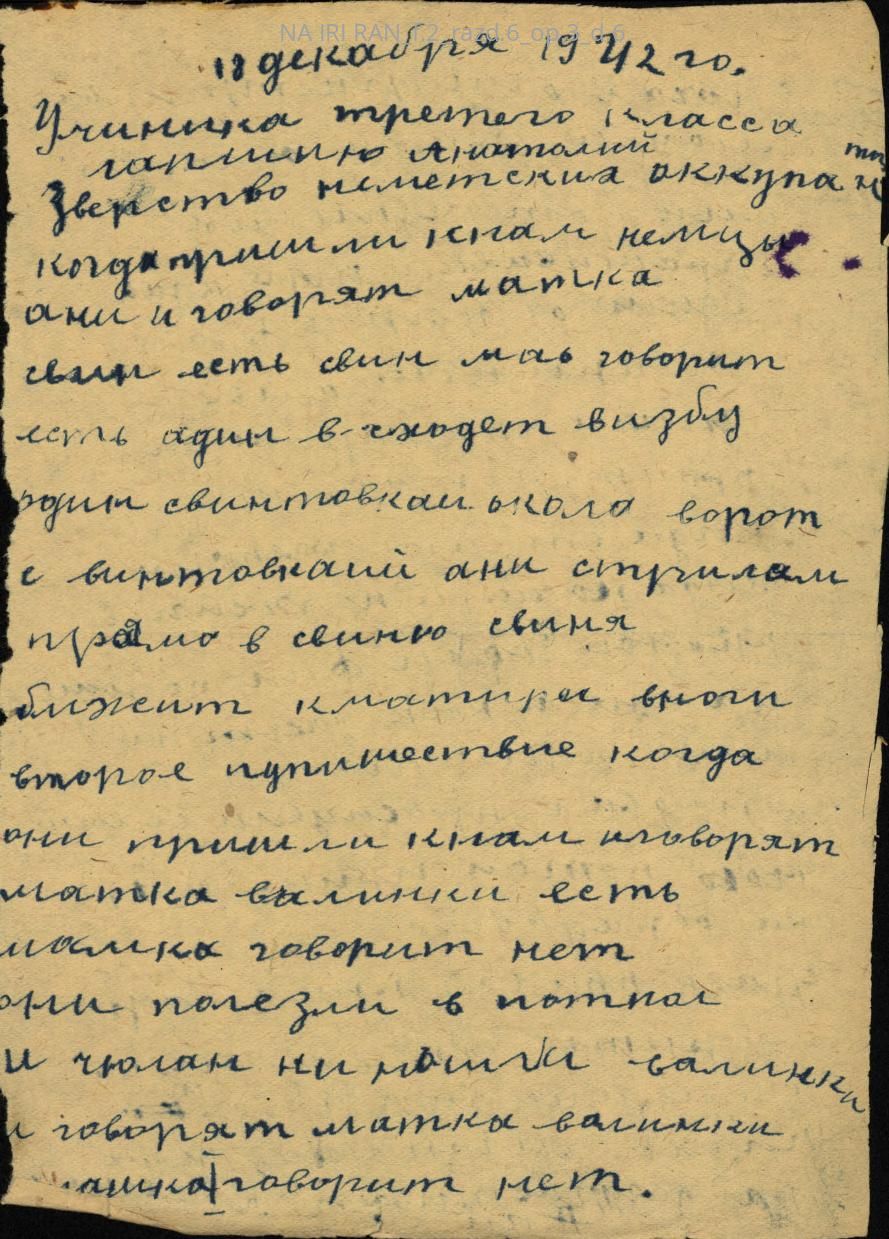 NA IRI RAN_f.2_razd.6_op.3_d.6
11 декабря 1942 го.
Учиника третего класса
лапшино Анатолий
Зверство неметских аккупант
когда пришли кнам немцы
ани и говорят матка
свин есть свин мав говорит
есть адин в сходет визбу
один свинтовкаи окала ворот
с винтовкаий ани стрилам
прамо в свиню свиня
бижит кматири вноги
второе путишествие когда
они пришли кнам иговорят
матка валинки есть
мамка говорит нет
они полезли в
и чюлан ни нашли валинки
и говорят матка валинки
говорит нет.